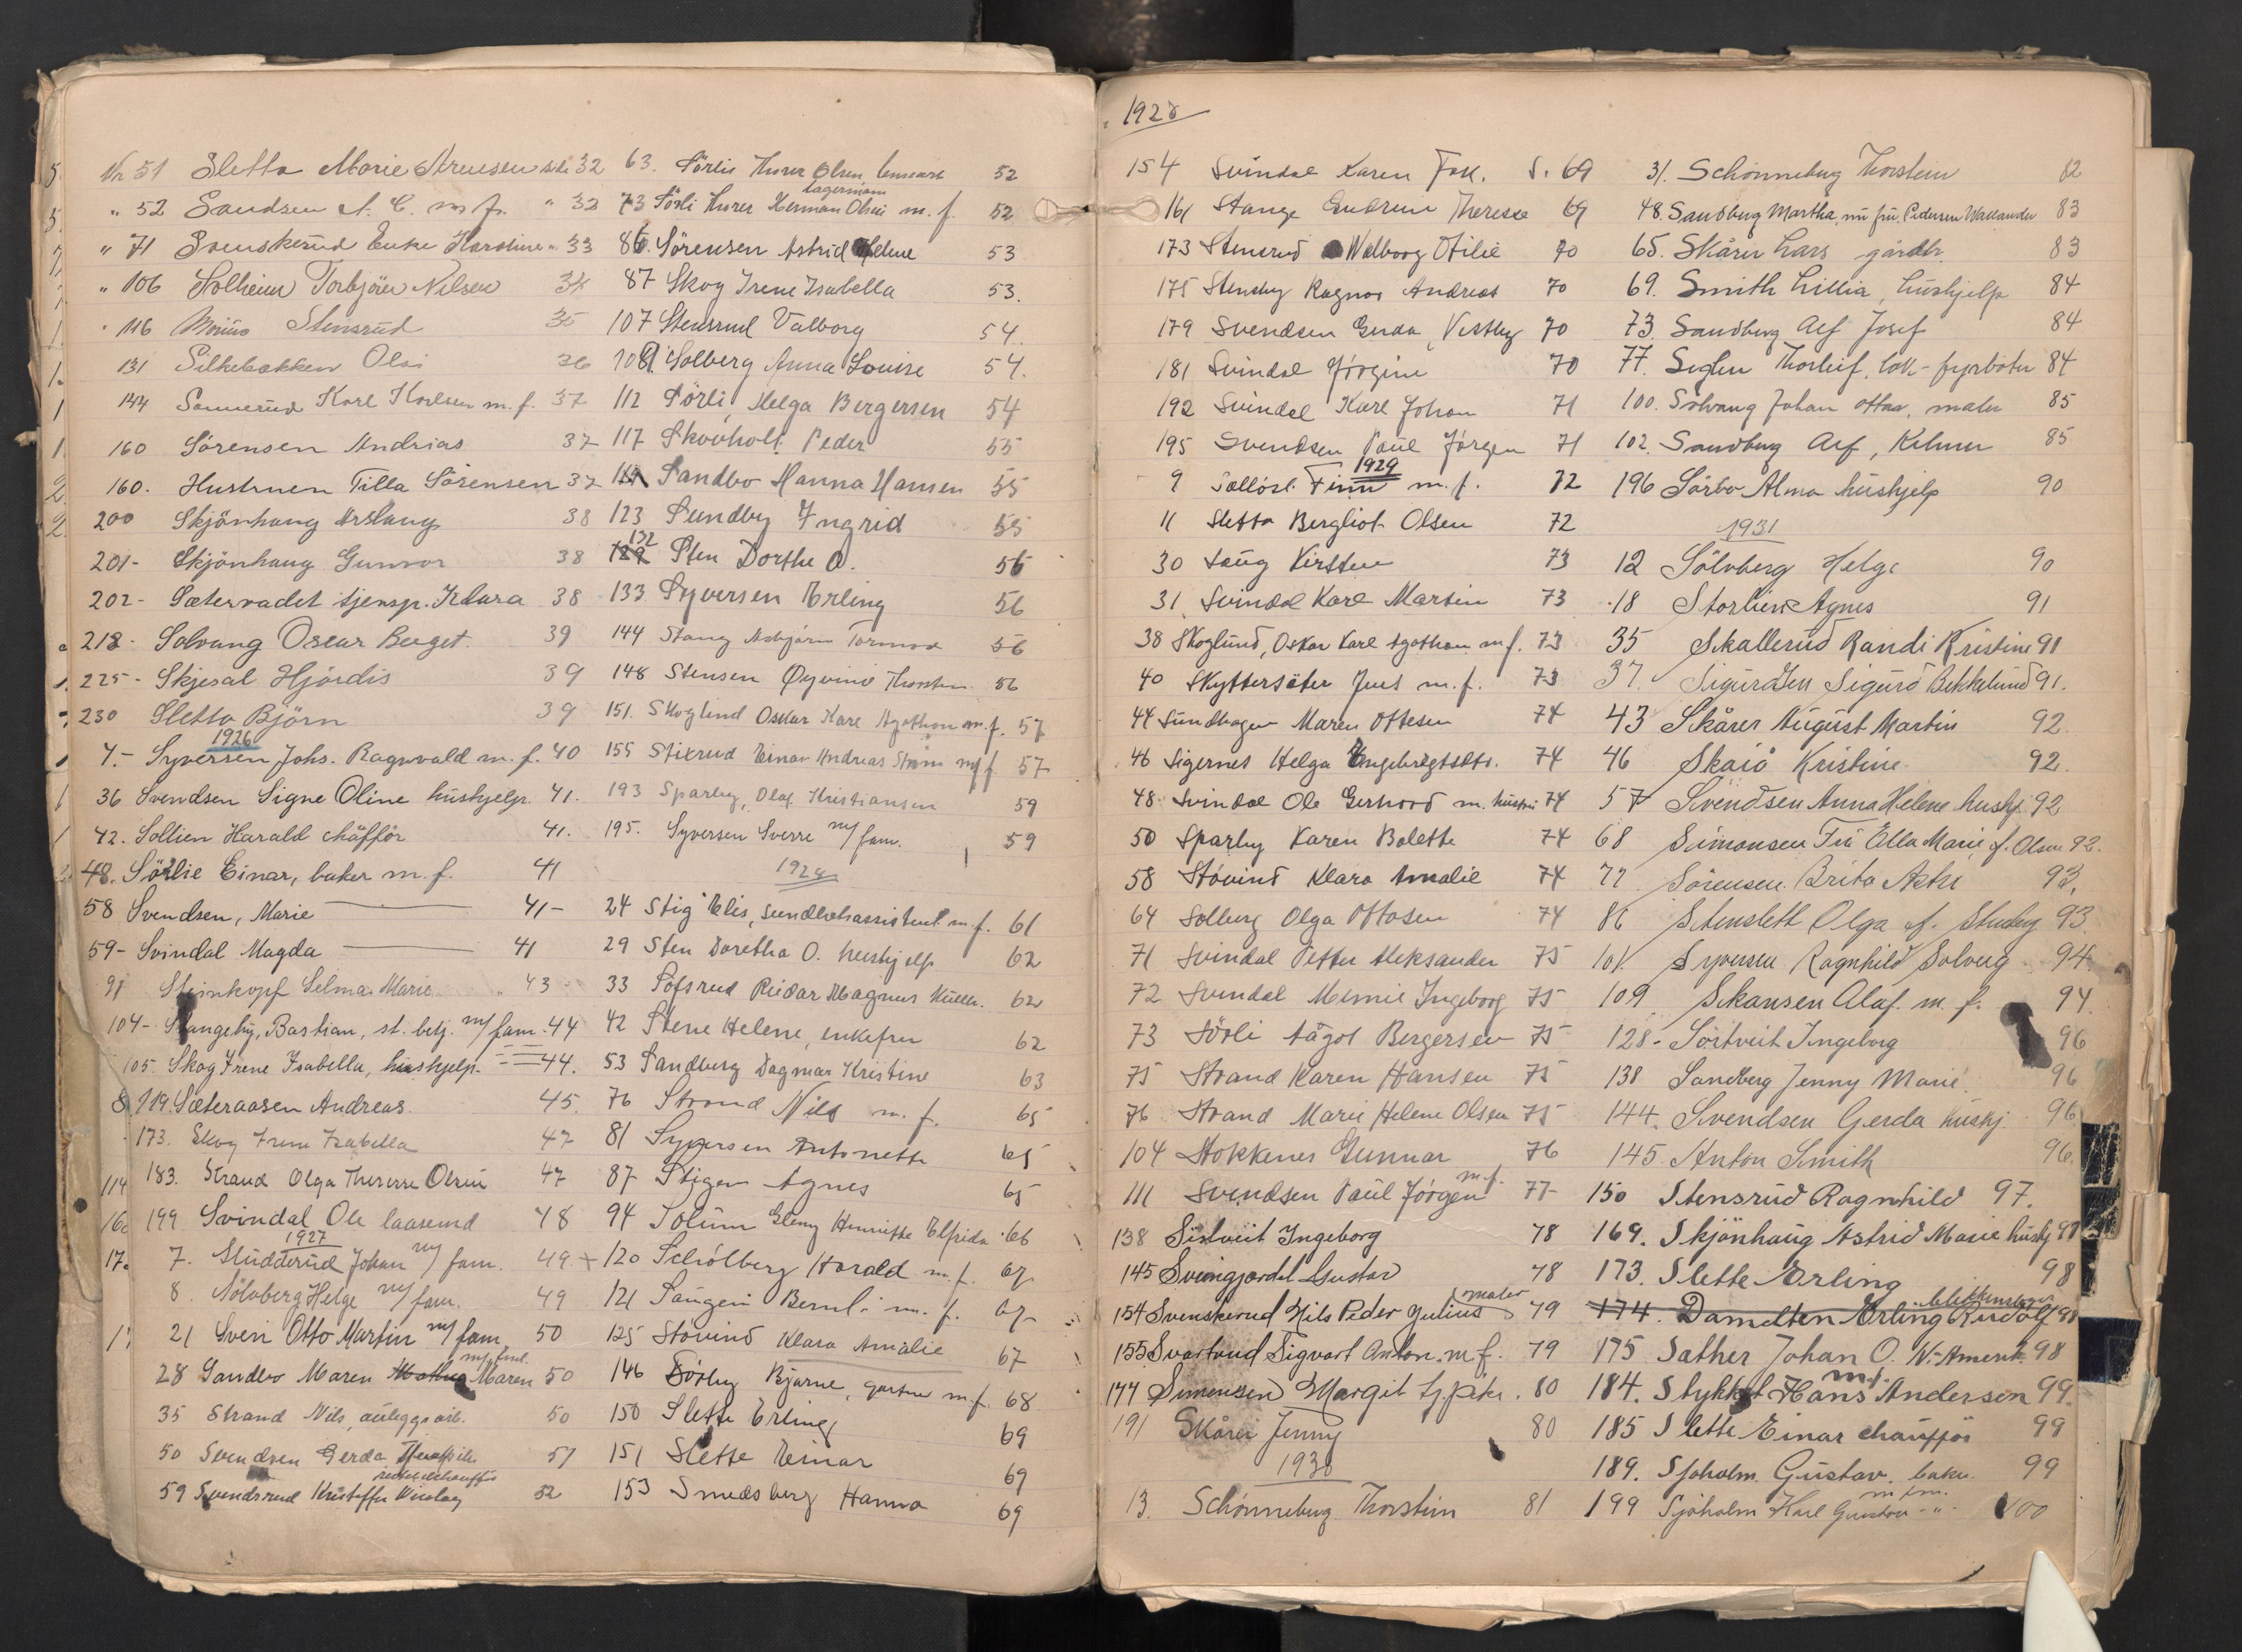 Nr 51 Sletta Marie Arensen side 32
" 52 Sandsen A. C. m f. " 32
" 71 Svenskerud Enke Karoline " 33
" 106 Solheim Torbjörn Nilsen 34
" 116 Stensrud 35
131 Silkebækken Olai 36
144 Sannerud Karl Karlsen m. f. 37
160 Sörensen Andrias 37
160. Hustruen Tilla Sörensen 37
200 Skjönhaug Aslaug 38
201- Skjönhaug Gunvor 38
202- Sætervadet tjensp. Klara 38
218- Solvang Oscar Berget. 39
225- Skjesal Hjördis 39
230 Sletta Björn 39
1926
4.- Syversen Johs. Ragnvald m. f. 40
36 Svendsen Signe Oline hushjelp 41.
42. Sollien Harald chåfför 41.
48. Sörlie Einar, baker m. f. 41
58 Svendsen, Marie 41-
59- Svindal Magda 41
91 Steinkopf Selma Marie 43
104- Stangeby, Bastian, st. betj. m/fam. 44
105 Skog Irene Isabella, hushjelp 44.
119. Sæteraasen Andreas 45.
173. Skog Irene Isabella 47
183. Strand Olga Therese Olsen 47
199 Svindal Ole laasesmed 48
1927
7. Studderud Johan m/ fam. 49
8. Sölvberg Helge m/ fam. 49
21 Sveri Otto Martin m/ fam 50
28 Sandbo Maren Maren 50
35 Strand Nils, anleggsarb. 50
50 Svendsen Gerda 51
59 Svendsrud Kristoffer Nicolay 52
63. Sörlie Thorer Olsen 52
lagermann
73 Sörli Thorer Herman Olsen m. f. 52
86. Sörensen Astrid Helene 53
87 Skog Irene Isabella 53.
107 Stensrud Valborg 54.
108 Solberg Anna Louise 54.
112 Sörli, Helga Bergersen 54
117 Skovholt Peder 55
Sandbo Hanna Hansen 55
123 Sundby Ingrid 55
132
129 Sten Dorthe O. 56
133 Syversen Erling 56
144 Stang Asbjörn Tormod 56
148 Stensen Øyvind Thorsten 56
151. Skoglund Oskar Karl Agathon m. f. 57
155 Stixrud Einar Andreas Ström m/f. 57
193 Sparby, Olaf Kristiansen 59
195. Syversen Sverre m/ fam. 59
1928
24 Stig Elis, sundhetsassistent m f. 61
29 Sten Doretha O. hushjelp 62
33 Sofsrud Reidar Magnus 62
42 Stene Helene, enkefru 62
53 Sandberg Dagmar Kristine 63
76 Strand Nils m. f. 65
81 Syversen Antonette 65
87 Stigen Agnes 65
94 Solum Henriette Elfrida 66
120 Schölberg Harald m. f. 67
121 Saugen m. f. 67
125 Stövind Klara Amalie 67
146 Sörby Bjarne, gartner m. f. 68
150 Slette Erling 69
151 Slette Einar 69
153 Smedsberg Hanna 69
1928
154 Svindal Karen S. 69
161 Stange Gudrun Therese 69
173 Stensrud Walborg Otilie 70
175 Stensby Ragnar Andreas 70
179 Svendsen Gerda, Vestby 70
181 Svindal Jörgine 70
192 Svindal Karl Johan 71
195 Svendsen Paul Jörgen 71
1929
9 Finn m. f. 72
11 Sletta Bergliot Olsen 72
30 Saug Kirsten 73
31 Svindal Karl Martin 73
38 Skoglund, Oskar Karl Agathon m f. 73
40 Skyttersæter Jens m. f. 73
44 Sundhagen Maren Ottesen 74
46 Sigernes Helga Engebregtsdtr. 74
48 Svindal Ole Gerhard m. hustru 74
50 Sparby Karen Bolette 74
58 Stövind Klara Amalie 74
64 Solberg Olga Ottosen 74
71 Svindal Petter Aleksander 75
72 Svindal Mimmi Ingeborg 75
73 Sörli Aagot Bergersen 75
75 Strand Karen Hansen 75
76 Strand Marie Helene Olsen 75
104 Stokkenes Gunnar 76
111 Svendsen Paul Jörgen m. f. 77
138 Sistveit Ingeborg 78
145 Svingjordet Gustav 78
154 Svenskerud Nils Peder Julius maler 79
155 Svartrud Sigvart Anton m f. 79
177 Simensen Margit 80
191 Skårer Jenny 80
1930
13. Schönneberg Thorstein 81
31. Schönneberg Thorstein 82
48. Sandberg Martha, nu fru Pedersen Wallander 83
65. Skårer Lars gårdbr. 83
69. Smith Lillia, hushjelp 84
73. Sandberg Alf Josef 84
77. Seglen Thorleif. lok-fyrböter 84
100. Solvang Johan Ottar, maler 85
102. Sandberg Alf, Kelner 85
196 Sörbo Alma hushjelp 90
1931
12 Sölvberg Helge 90
18 Storlien Agnes 91
35 Skallerud Randi Kristine 91
37. Sigurdsen Sigurd Bekkelund 91.
43 Skårer August Martin 92
46 Skaiå Kristine 92.
57 Svendsen Anna Helene hushj. 92
68 Simonsen Fru Ella Marie f. Olsen 92.
77 Sörensen Brita Astri 93.
86 Stenslett Olga f. Stuby 93.
101. Syversen Ragnhild Solveig 94
109 Skansen Olaf. m. f. 94.
128- Sörtveit Ingeborg 96
138 Sandberg Jenny Marie 96
144. Svendsen Gerda hushj. 96
145. Anton Smith 96.
150 Stensrud Ragnhild 97.
169. Skjönhaug Astrid Marie hushj 98
173. Slette Erling 98
174. Damelten Erling Rudolf 98
175 Sather Johan O. N.-Amerik. 98
184. Stykket Hans Anderson m. f. 99.
185 Slette Einar chaufför 99
189. Sjöholm Gustav. baker 99
199 Sjöholm Karl Gustav 100